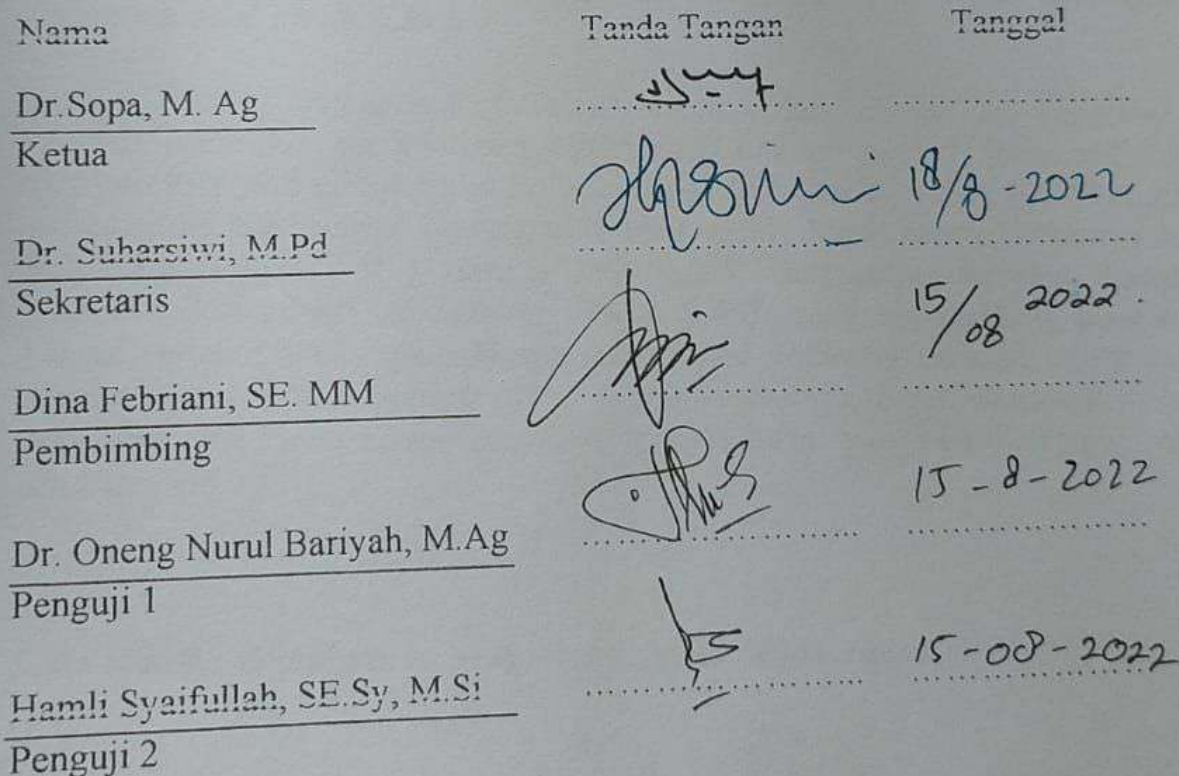 Nama Tanda Tangan Tanggal
Dr.Sopa, M. Ag
Ketua
18/8-2022
Dr. Suharsiwi, M.Pd
Sekretaris
15/08 2022.
Dina Febriani, SE. MM
Pembimbing
15-8-2022
Dr. Oneng Nurul Bariyah, M.Ag
Penguji 1
15-08-2022
Hamli Syaifullah, SE.Sy, M.Si
Penguji 2